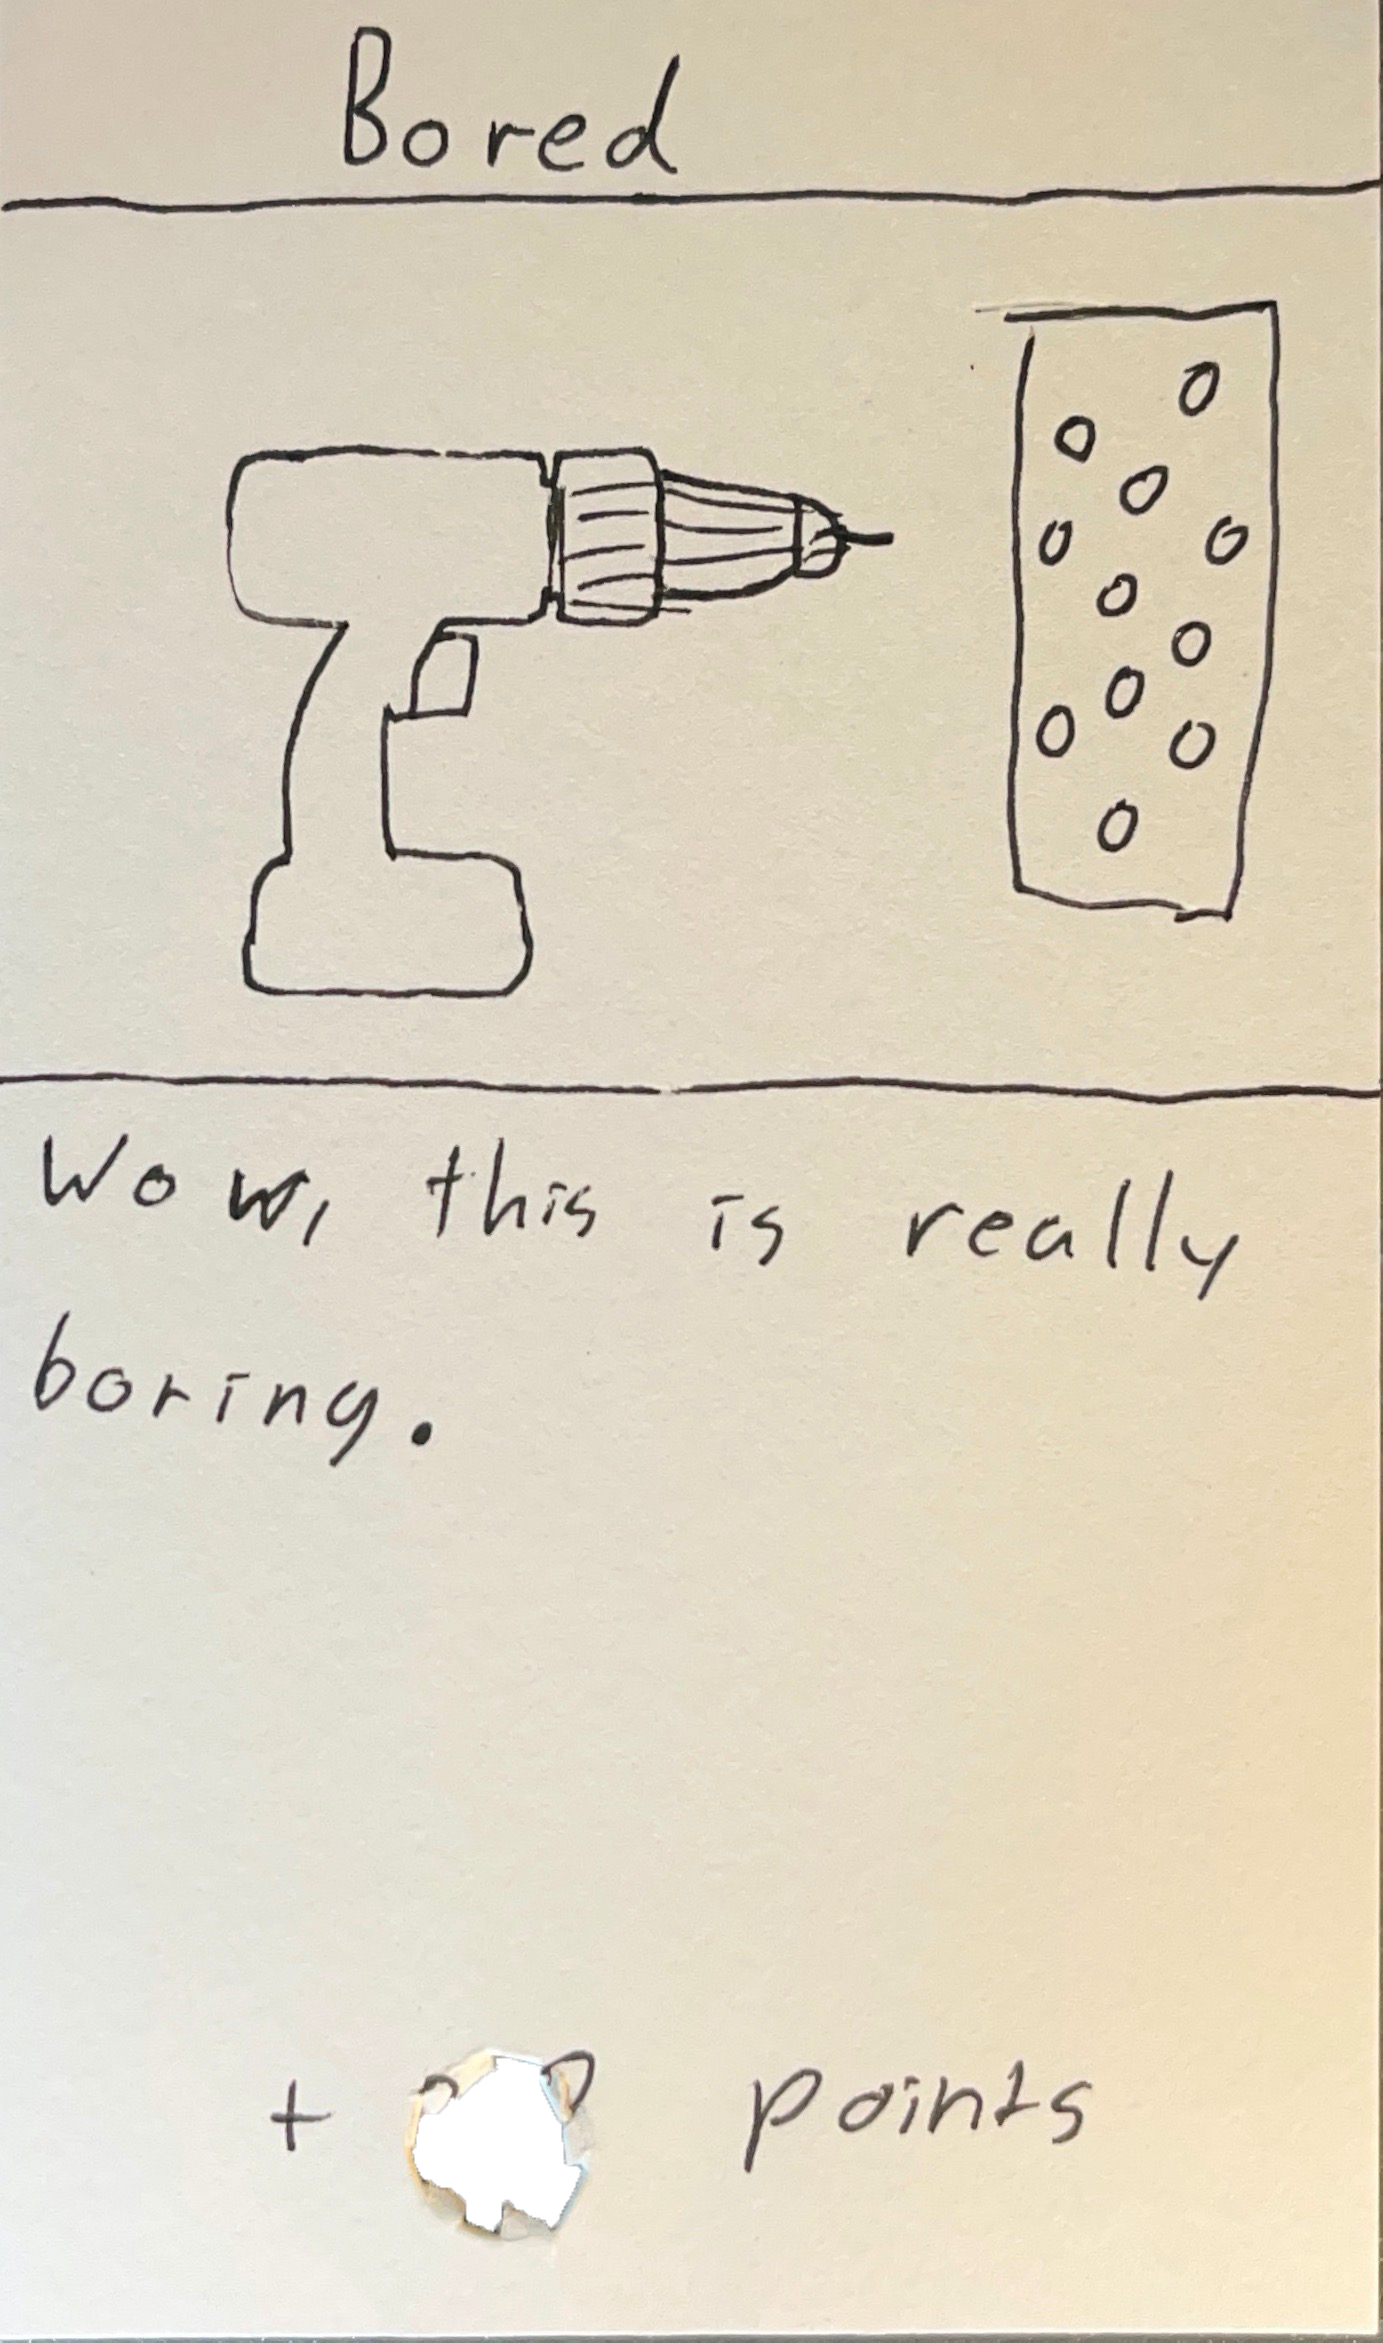 Bored
Wow, this is really
boring.
+ points